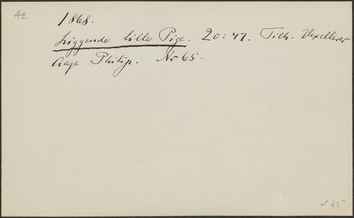 42
1868.
Liggende lille Pige. 20:47. Tilh. Vexellerer
Aage Philip. No 65.